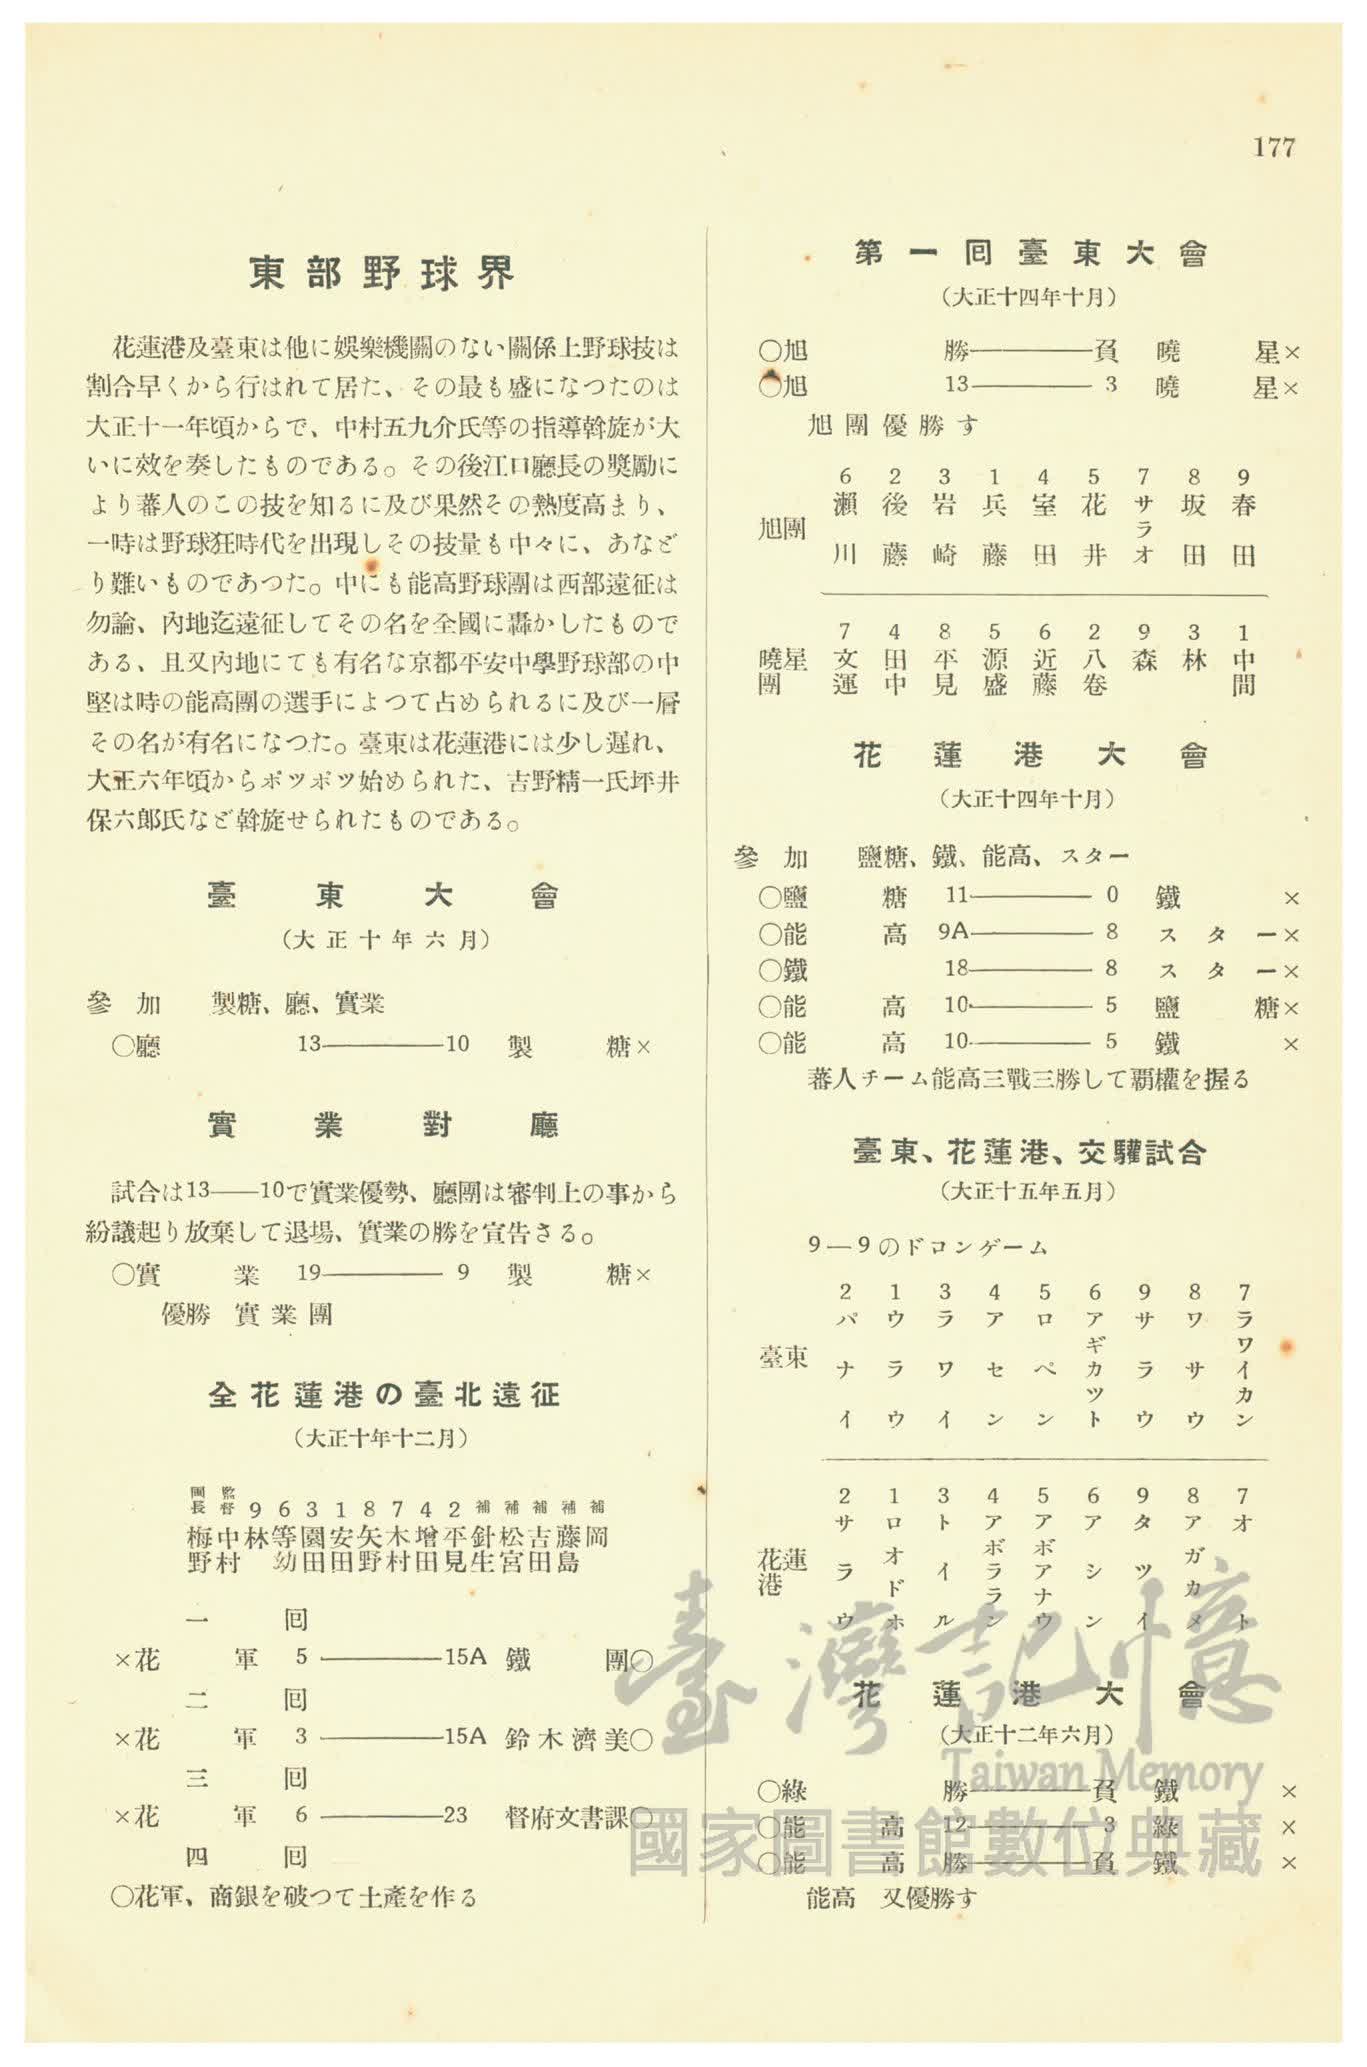 177
東部野球界
花蓮港及臺東は他に娯樂機關のない關係上野球技は
割合早くから行はれて居た、その最も盛になつたのは
大正十一年頃からで、中村五九介氏等の指導斡旋が大
いに效を奏したものである。その後江口廳長の奬勵に
より蕃人のこの技を知るに及び果然その熱度高まり、
一時は野球狂時代を出現しその技量も中々に、あなど
り難いものであつた。中にも能高野球團は西部遠征は
勿論、內地迄遠征してその名を全國に轟かしたもので
ある、且又內地にても有名な京都平安中學野球部の中
堅は時の能高團の選手によつて占められるに及び一層
その名が有名になつた。臺東は花蓮港には少し遲れ、
大正六年頃からポツポツ始められた、吉野精一氏坪井
保六郞氏など斡旋せられたものである。
臺東大會
（大正十年六月）
參加 製糖、廳、實業
○廳 13――10 製糖×
實業對廳
試合は13――10で實業優勢、廳團は審判上の事から
紛議起り放棄して退場、實業の勝を宣吿さる。
○實業 19――9 製糖×
優勝 實業團
全花蓮港の臺北遠征
（大正十年十二月）
團長 監督 9 6 3 1 8 7 4 2 補 補 補 補 補
梅野 中村 林 等々力 園田 安田 矢野 木村 增田 平見 針生 松宮 吉田 藤島 岡
一回
×花軍 5――15A 鐵團○
二回
×花軍 3――15A 鈴木濟美○
三回
×花軍 6――23 督府文書課○
四回
○花軍、商銀を破つて土產を作る
第一回臺東大會
（大正十四年十月）
○旭 勝――負 曉星×
○旭 13――3 曉星×
旭團優勝す
6 2 3 1 4 5 7 8 9
旭團 瀨川 後藤 岩崎 兵藤 室田 花井 サラオ 坂田 春田
7 4 8 5 6 2 9 3 1
曉星團 文運 田中 平見 源盛 近藤 八卷 森 林 中間
花蓮港大會
（大正十四年十月）
參加 鹽糖、鐵、能高、スター
○鹽糖 11――0 鐵×
○能高 9A――8 スター×
○鐵 18――8 スター×
○能高 10――5 鹽糖×
○能高 10――5 鐵×
蕃人チーム能高三戰三勝して覇權を握る
臺東、花蓮港、交驩試合
（大正十五年五月）
9―9のドロンゲーム
2 1 3 4 5 6 9 8 7
臺東 パナイ ウラウ ラワイ アセン ロペン アギカツト サラウ ワサウ ラワイカン
2 1 3 4 5 6 9 8 7
花蓮港 サラウ ロオドホ トイル アボララン アボアナウ アシン タツイ アガカメ オト
花蓮港大會
（大正十二年六月）
○綠 勝――負 鐵×
○能高 12――3 綠×
○能高 勝――負 鐵×
能高 又優勝す
臺灣記憶
Taiwan Memory
國家圖書館數位典藏